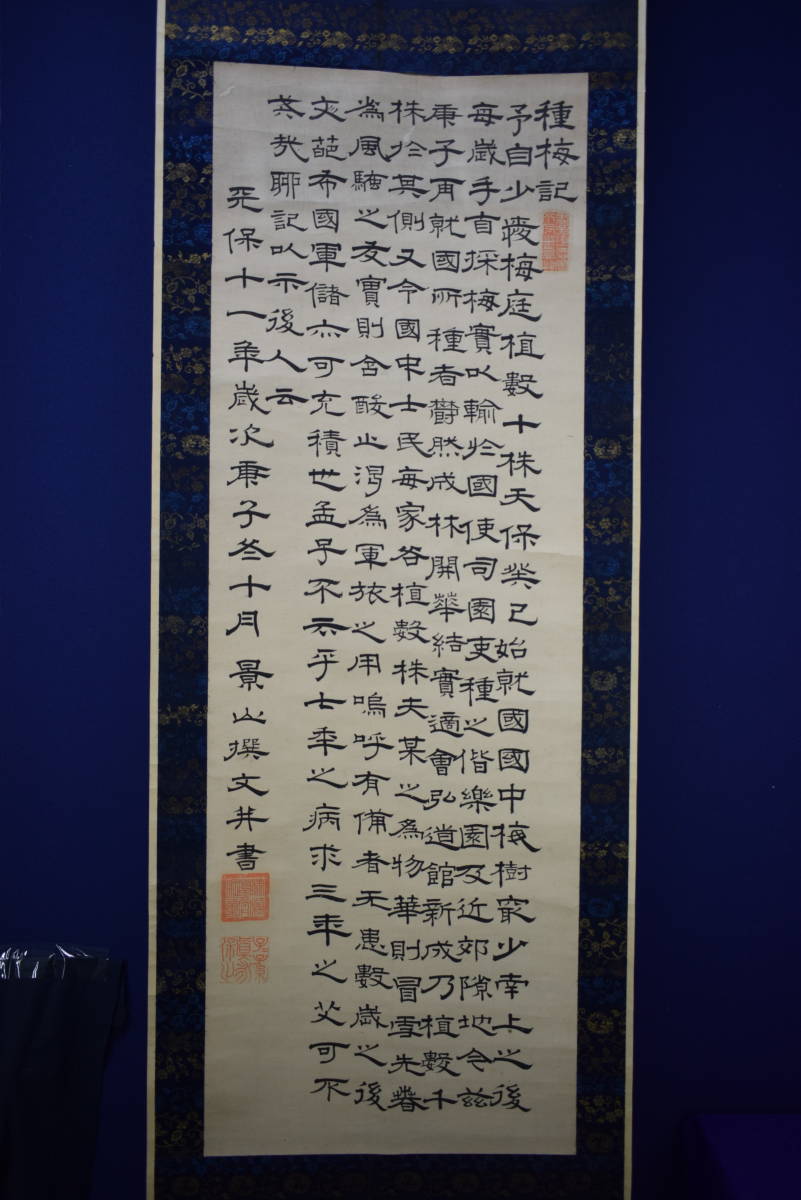 種梅記
予自少愛梅庭植數十株天保癸巳始就國國中梅樹最少南上之後
每歲手自採梅實以輸於國使司園吏種之偕樂園及近郊隙地今茲
庚子再就國所種者鬱然成林開華結實適會弘道館新成乃植數千
株於其側又令國中士民每家各植數株夫某之為物華則冒雪先春
為風騷之友實則含酸止渴為軍旅之用嗚呼有備者无患數歲之後
文葩布國軍儲亦可充積也孟子不云乎七年之病求三年之艾可不
共哉聊記以示後人云
天保十一年歲次庚子冬十月 景山撰文并書